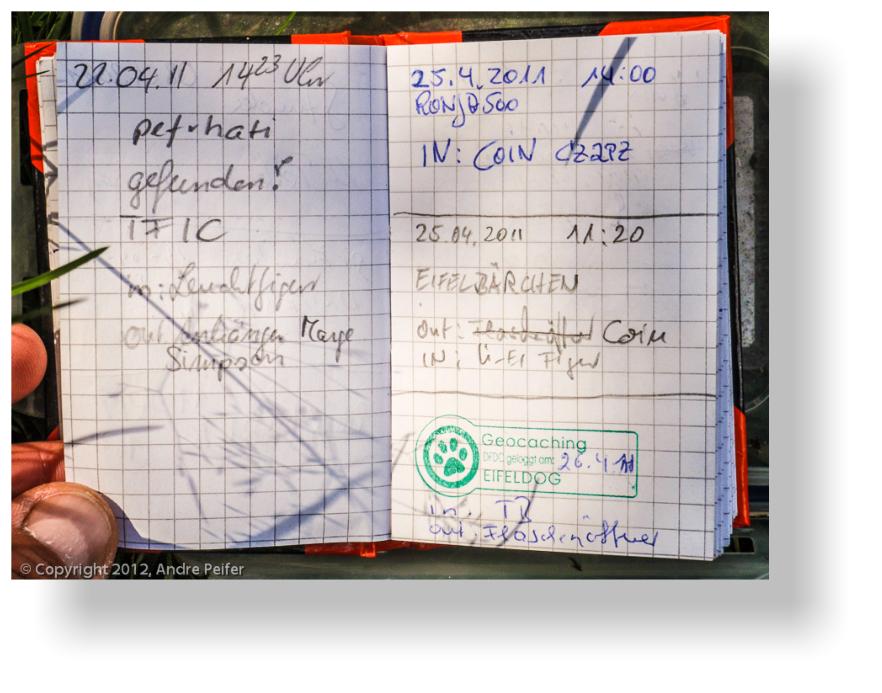 22.04.11 14²³ Uhr
petrhati
gefunden!
TFTC
in: Leuchtfigur
out Anhänger Marge
Simpson
25.4.2011 14:00
RONJA500
IN: COIN CZ2PZ
25.04.2011 11:20
EIFELBÄRCHEN
out: Flaschöffner Coin
IN: Ü-Ei Figur
Geocaching
DFDC geloggt am: 26.4.11
EIFELDOG
in: TB
out Flaschenöffner
© Copyright 2012, Andre Peifer